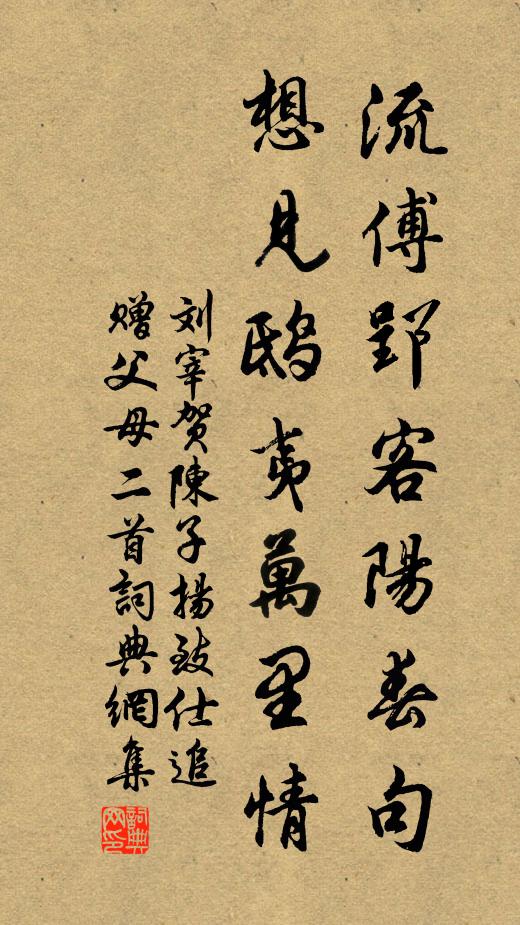 流傅郢客陽春句
想見鴟夷萬里情
刘宰贺陳子揚致仕追
赠父母二首詞典網集
詞典网印